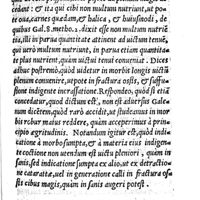 cedent: & ita qui cibi non multum nutriunt, ut po
te oua, carnes quædam, & halica, & huiusmodi, de
quibus Gal. 8. metho. 2. dixit esse non multum nutriẽ
tia, illi in parua quantitate ationem ad uictum tenuẽ,
qui uerò multum nutriunt, in parua etiam quantita-
te plus nutrient, quàm uictui tenui conueniat. Dices
adhuc postremò, quod uidetur in morbis longis uictũ
plenum conuenire, ut pote in fractura ossis, & suffu-
sione indigente incrassatione. Respondeo, quòd si etiã
concedatur, quod dictum est, non est aduersus Gale-
num dicẽtem, quod rarò accidit, ut studeamus in mor
bis robur maius reddere, quàm acceperimus à prin-
cipio ægritudinis. Notandum igitur est, quòd indica
tio à morbo sumpta, & à materia eius indigen-
te coctione non uocendum est uictu pleniori, quàm in
sanis. sed indicatione sumpta ex alio, ut ex detractio-
ne cataractæ, uel in generatione calli in fractura os-
sis cibus magis, quàm in sanis augeri potest.